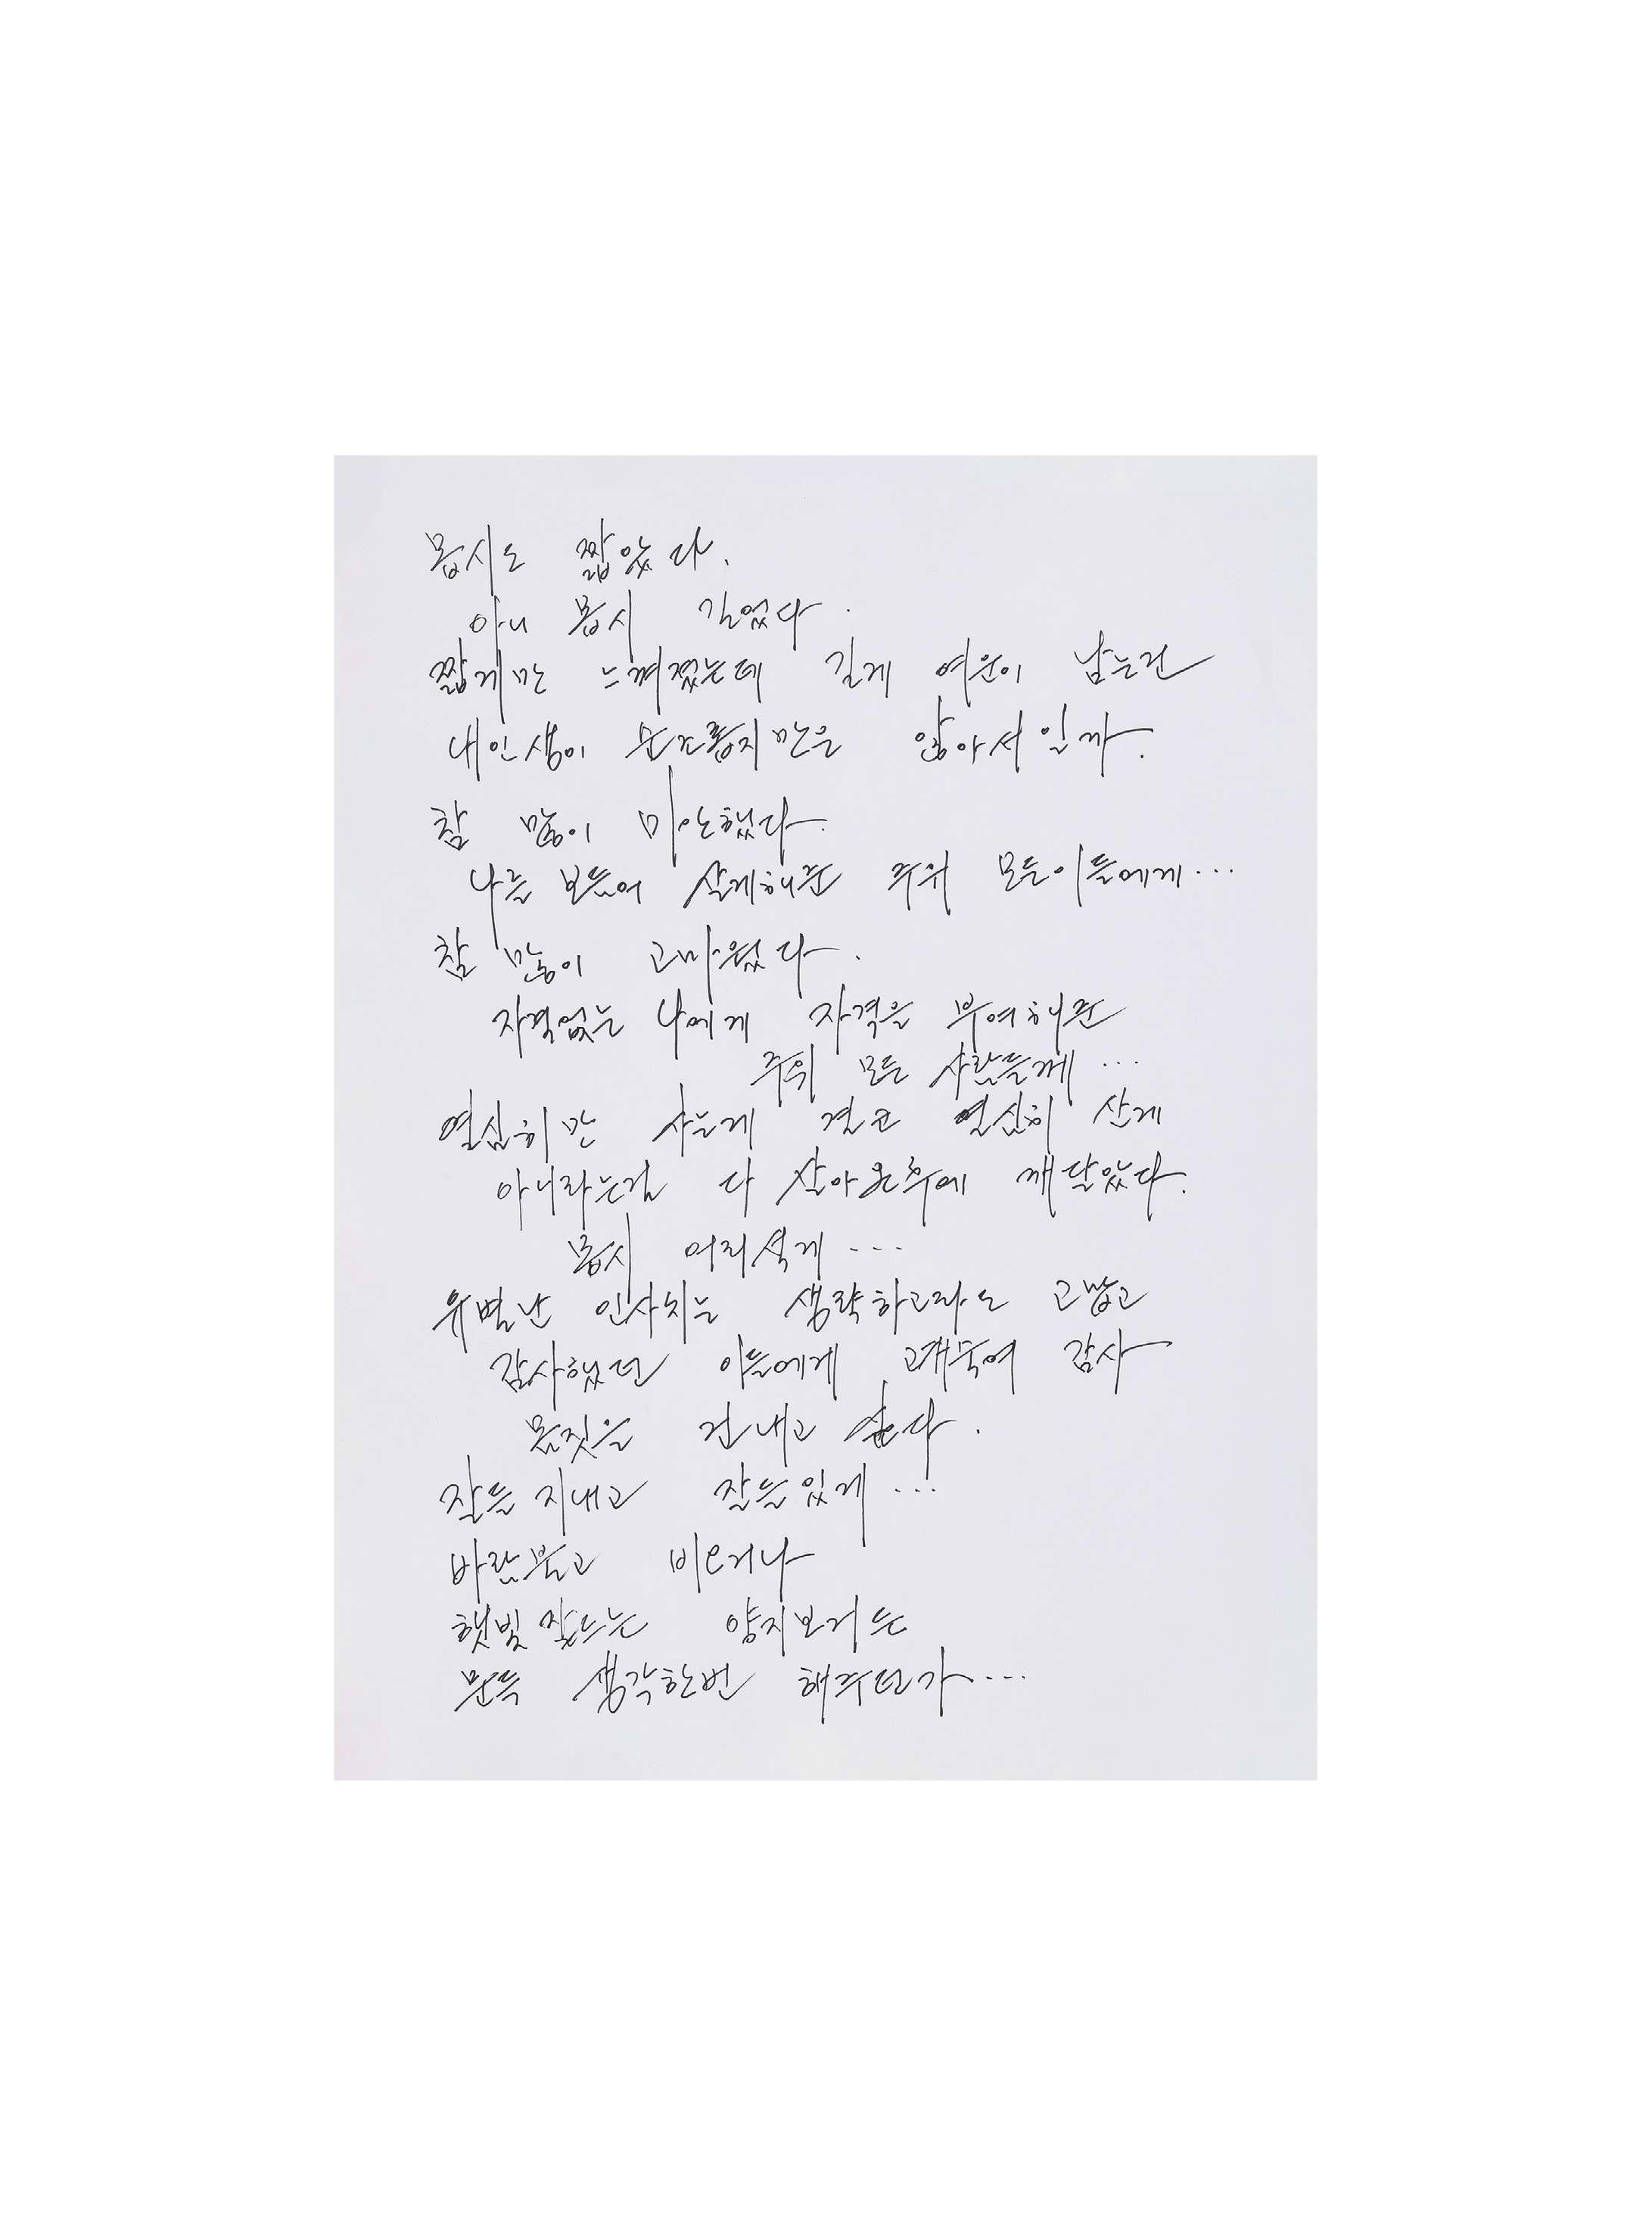 몹시도 짧았다.
아니 몹시 길었다.
짧게만 느껴졌는데 길게 여운이 남는건
내인생이 순조롭지만은 않아서일까.
참 많이 미안했다.
나를 보듬어 살게해준 주위 모든이들에게...
참 많이 고마웠다.
자격없는 나에게 자격을 부여해준
주위 모든 사람들께...
열심히만 사는게 결코 열심히 산게
아니라는걸 다 살아온후에 깨달았다.
몹시 어리석게...
유별난 인사치는 생략하고라도 고맙고
감사했던 이들에게 고개숙여 감사
몸짓을 건내고 싶다.
잘들 지내고 잘들있게...
바람불고 비오거나
햇빛 잘드는 양지보거든
문득 생각한번 해주던가...